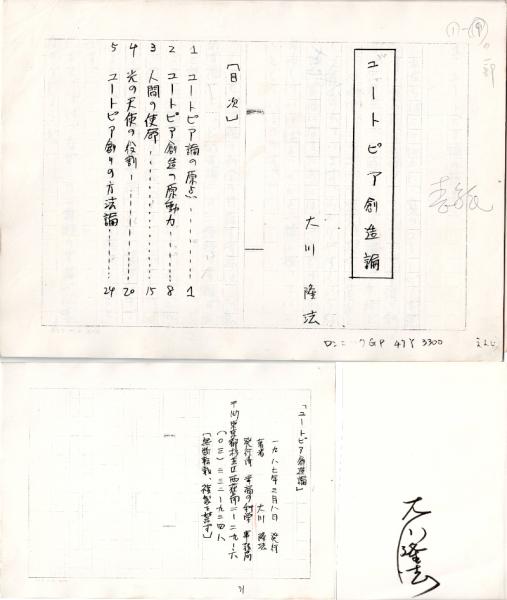 ユートピア創造論
大川 隆法
「目次」
1 ユートピア論の原点 1
2 ユートピア創造の原動力 8
3 人間の使命 15
4 光の天使の役割 20
5 ユートピア創りの方法論 24
表紙
47Y 3300
「ユートピア創造論」
一九八七年三月八日 発行
著者 大川 隆法
発行所 幸福の科学 事務局
東京都杉並区西荻南二-二九-六
「無断転載・複製を禁ず」
31
大川隆法